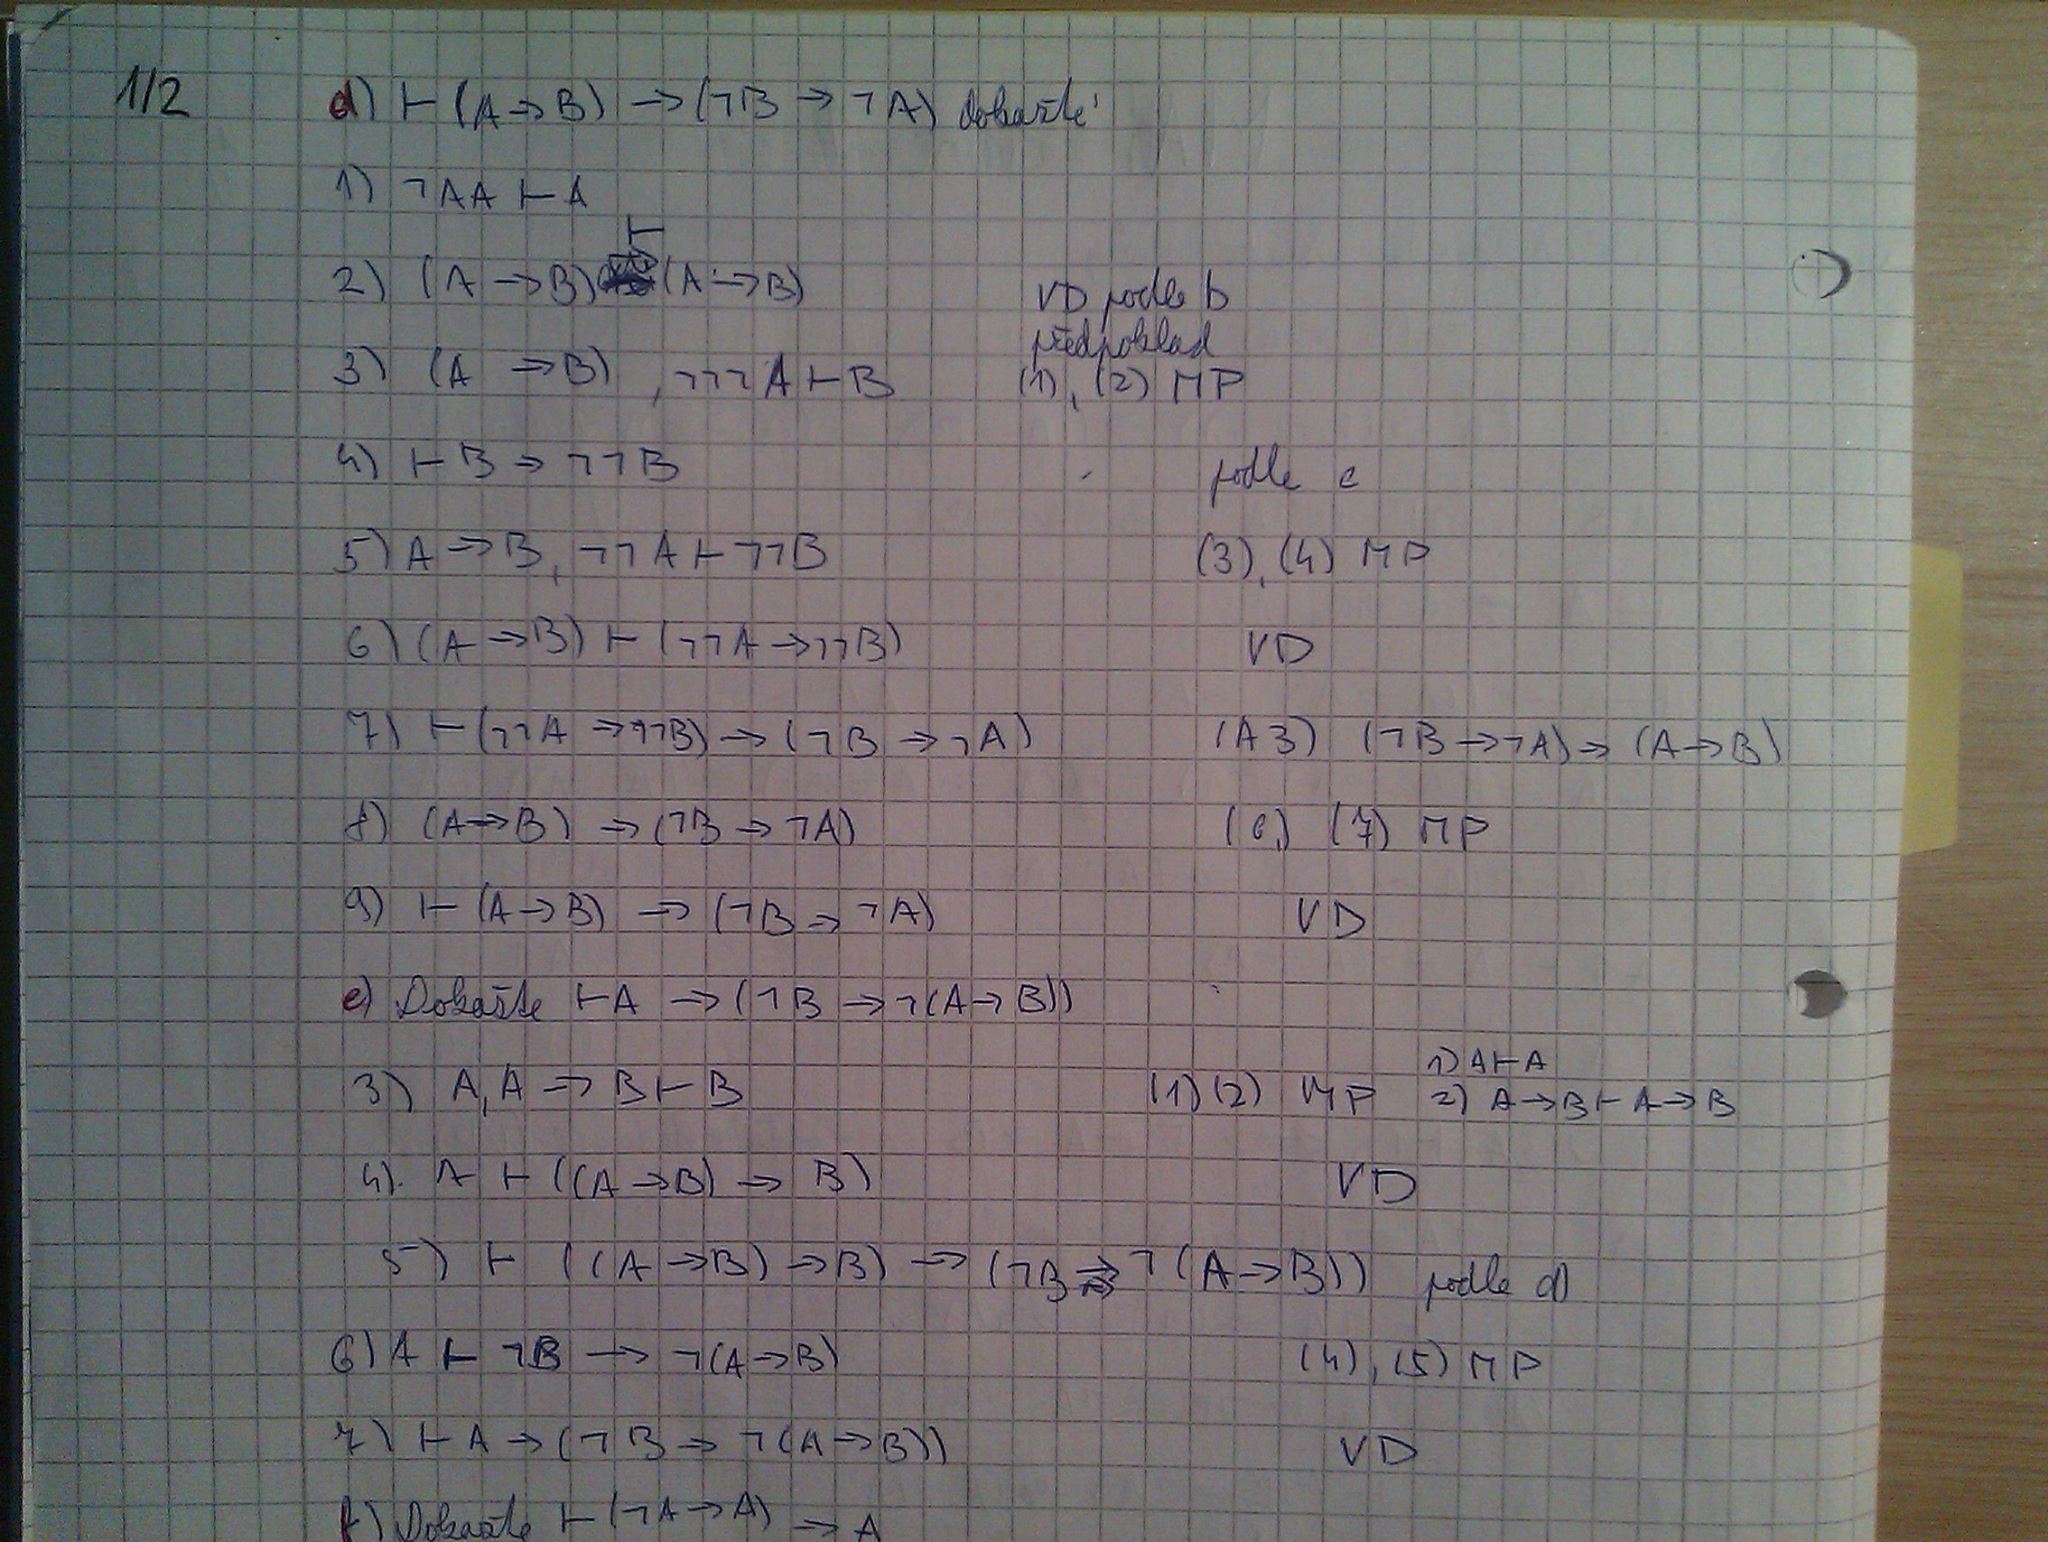 1/2 d) ⊢ (A → B) → (¬B → ¬A) Dokažte
1) ¬AA ⊢ A
2) (A → B) ⊢ (A → B) VD podle b
předpoklad
3) (A → B), ¬¬¬A ⊢ B (1), (2) MP
4) ⊢ B → ¬¬B podle c
5) A → B, ¬¬A ⊢ ¬¬B (3), (4) MP
6) (A → B) ⊢ (¬¬A → ¬¬B) VD
7) ⊢ (¬¬A → ¬¬B) → (¬B → ¬A) (A3) (¬B → ¬A) → (A → B)
8) (A → B) → (¬B → ¬A) (6,) (7) MP
9) ⊢ (A → B) → (¬B → ¬A) VD
e) Dokažte ⊢ A → (¬B → ¬(A → B))
1) A ⊢ A
3) A, A → B ⊢ B (1) (2) MP 2) A → B ⊢ A → B
4) A ⊢ ((A → B) → B) VD
5) ⊢ ((A → B) → B) → (¬B → ¬(A → B)) podle d)
6) A ⊢ ¬B → ¬(A → B) (4), (5) MP
7) ⊢ A → (¬B → ¬(A → B)) VD
f) Dokažte ⊢ (¬A → A) → A